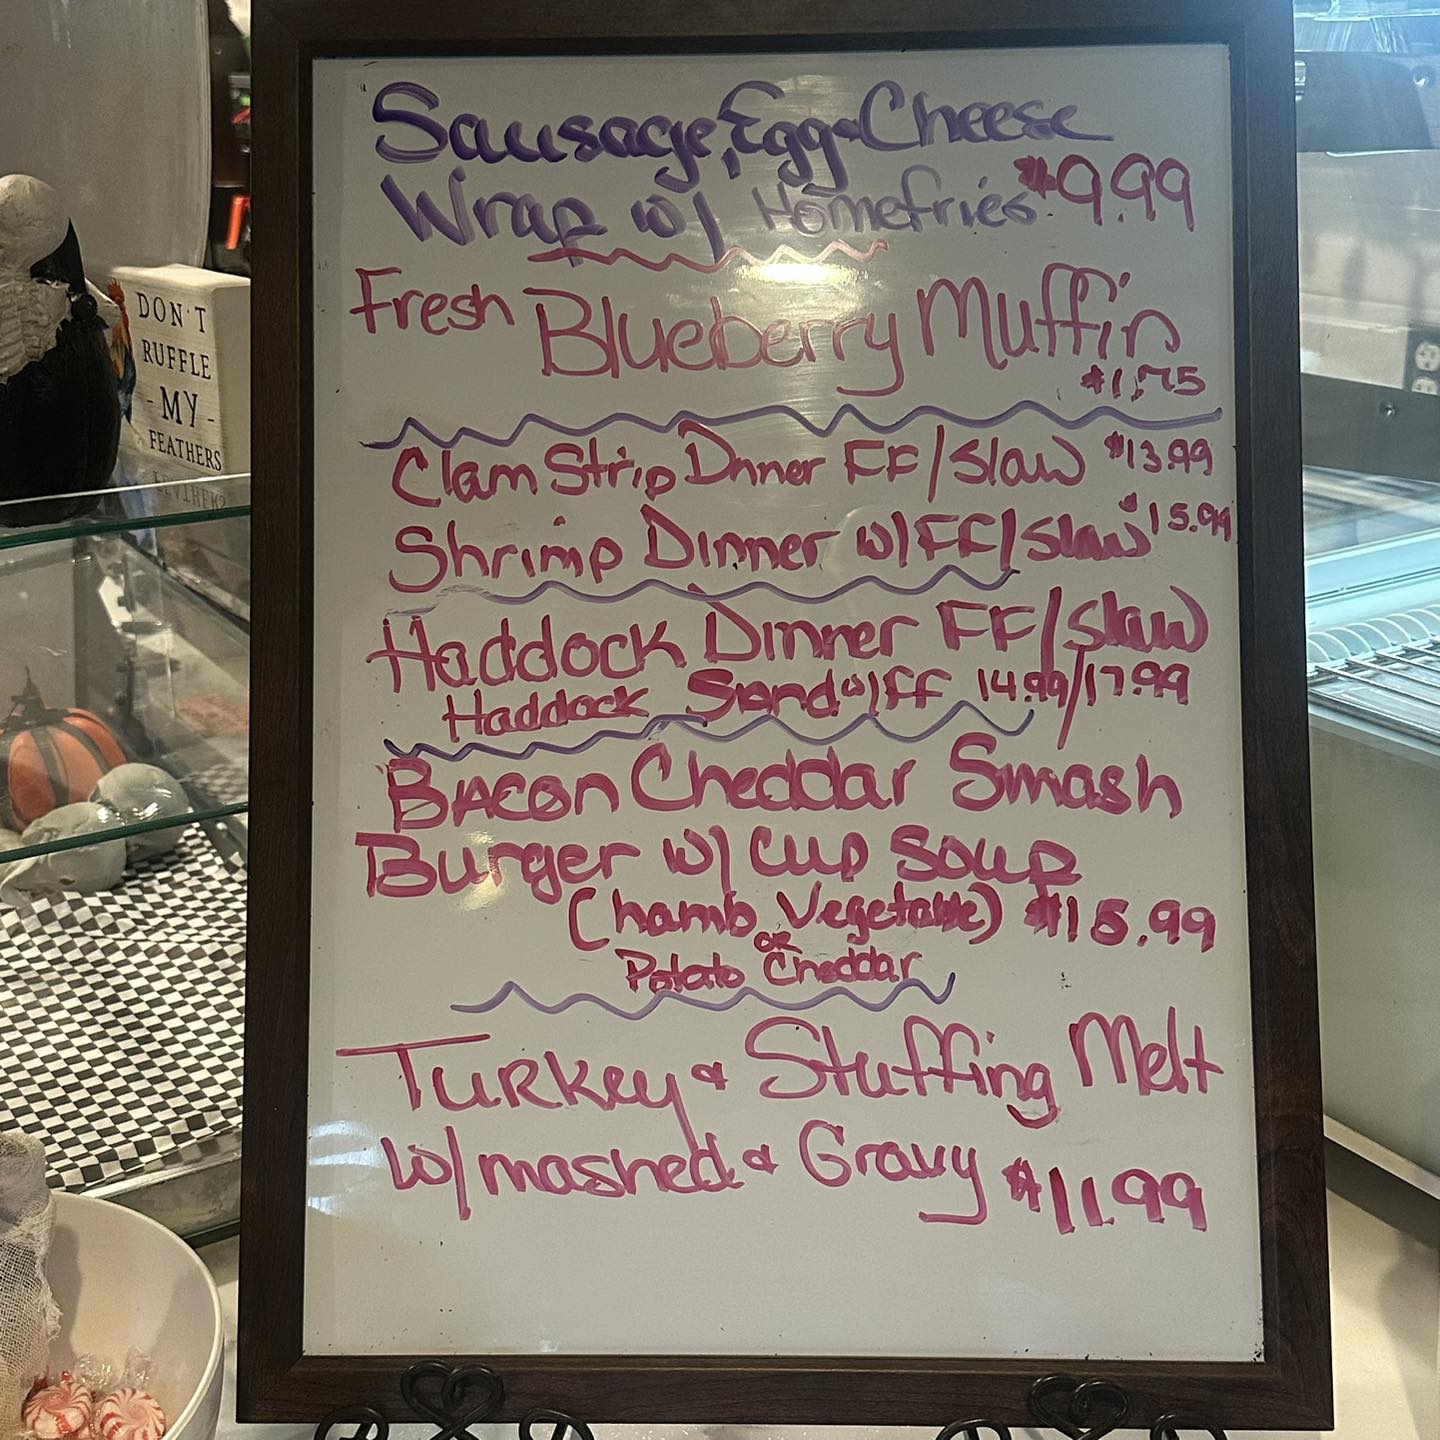 Sausage, Egg & Cheese
Wrap w/ Homefries $9.99
Fresh Blueberry Muffin
$1.75
Clam Strip Dinner FF/Slaw $13.99
Shrimp Dinner w/FF/Slaw $15.99
Haddock Dinner FF/Slaw
Haddock Sand w/FF 14.99/17.99
Bacon Cheddar Smash
Burger w/ cup soup
(hamb Vegetable) $15.99
or
Potato Cheddar
Turkey & Stuffing Melt
w/mashed & Gravy $11.99
DON'T
RUFFLE
- MY -
FEATHERS